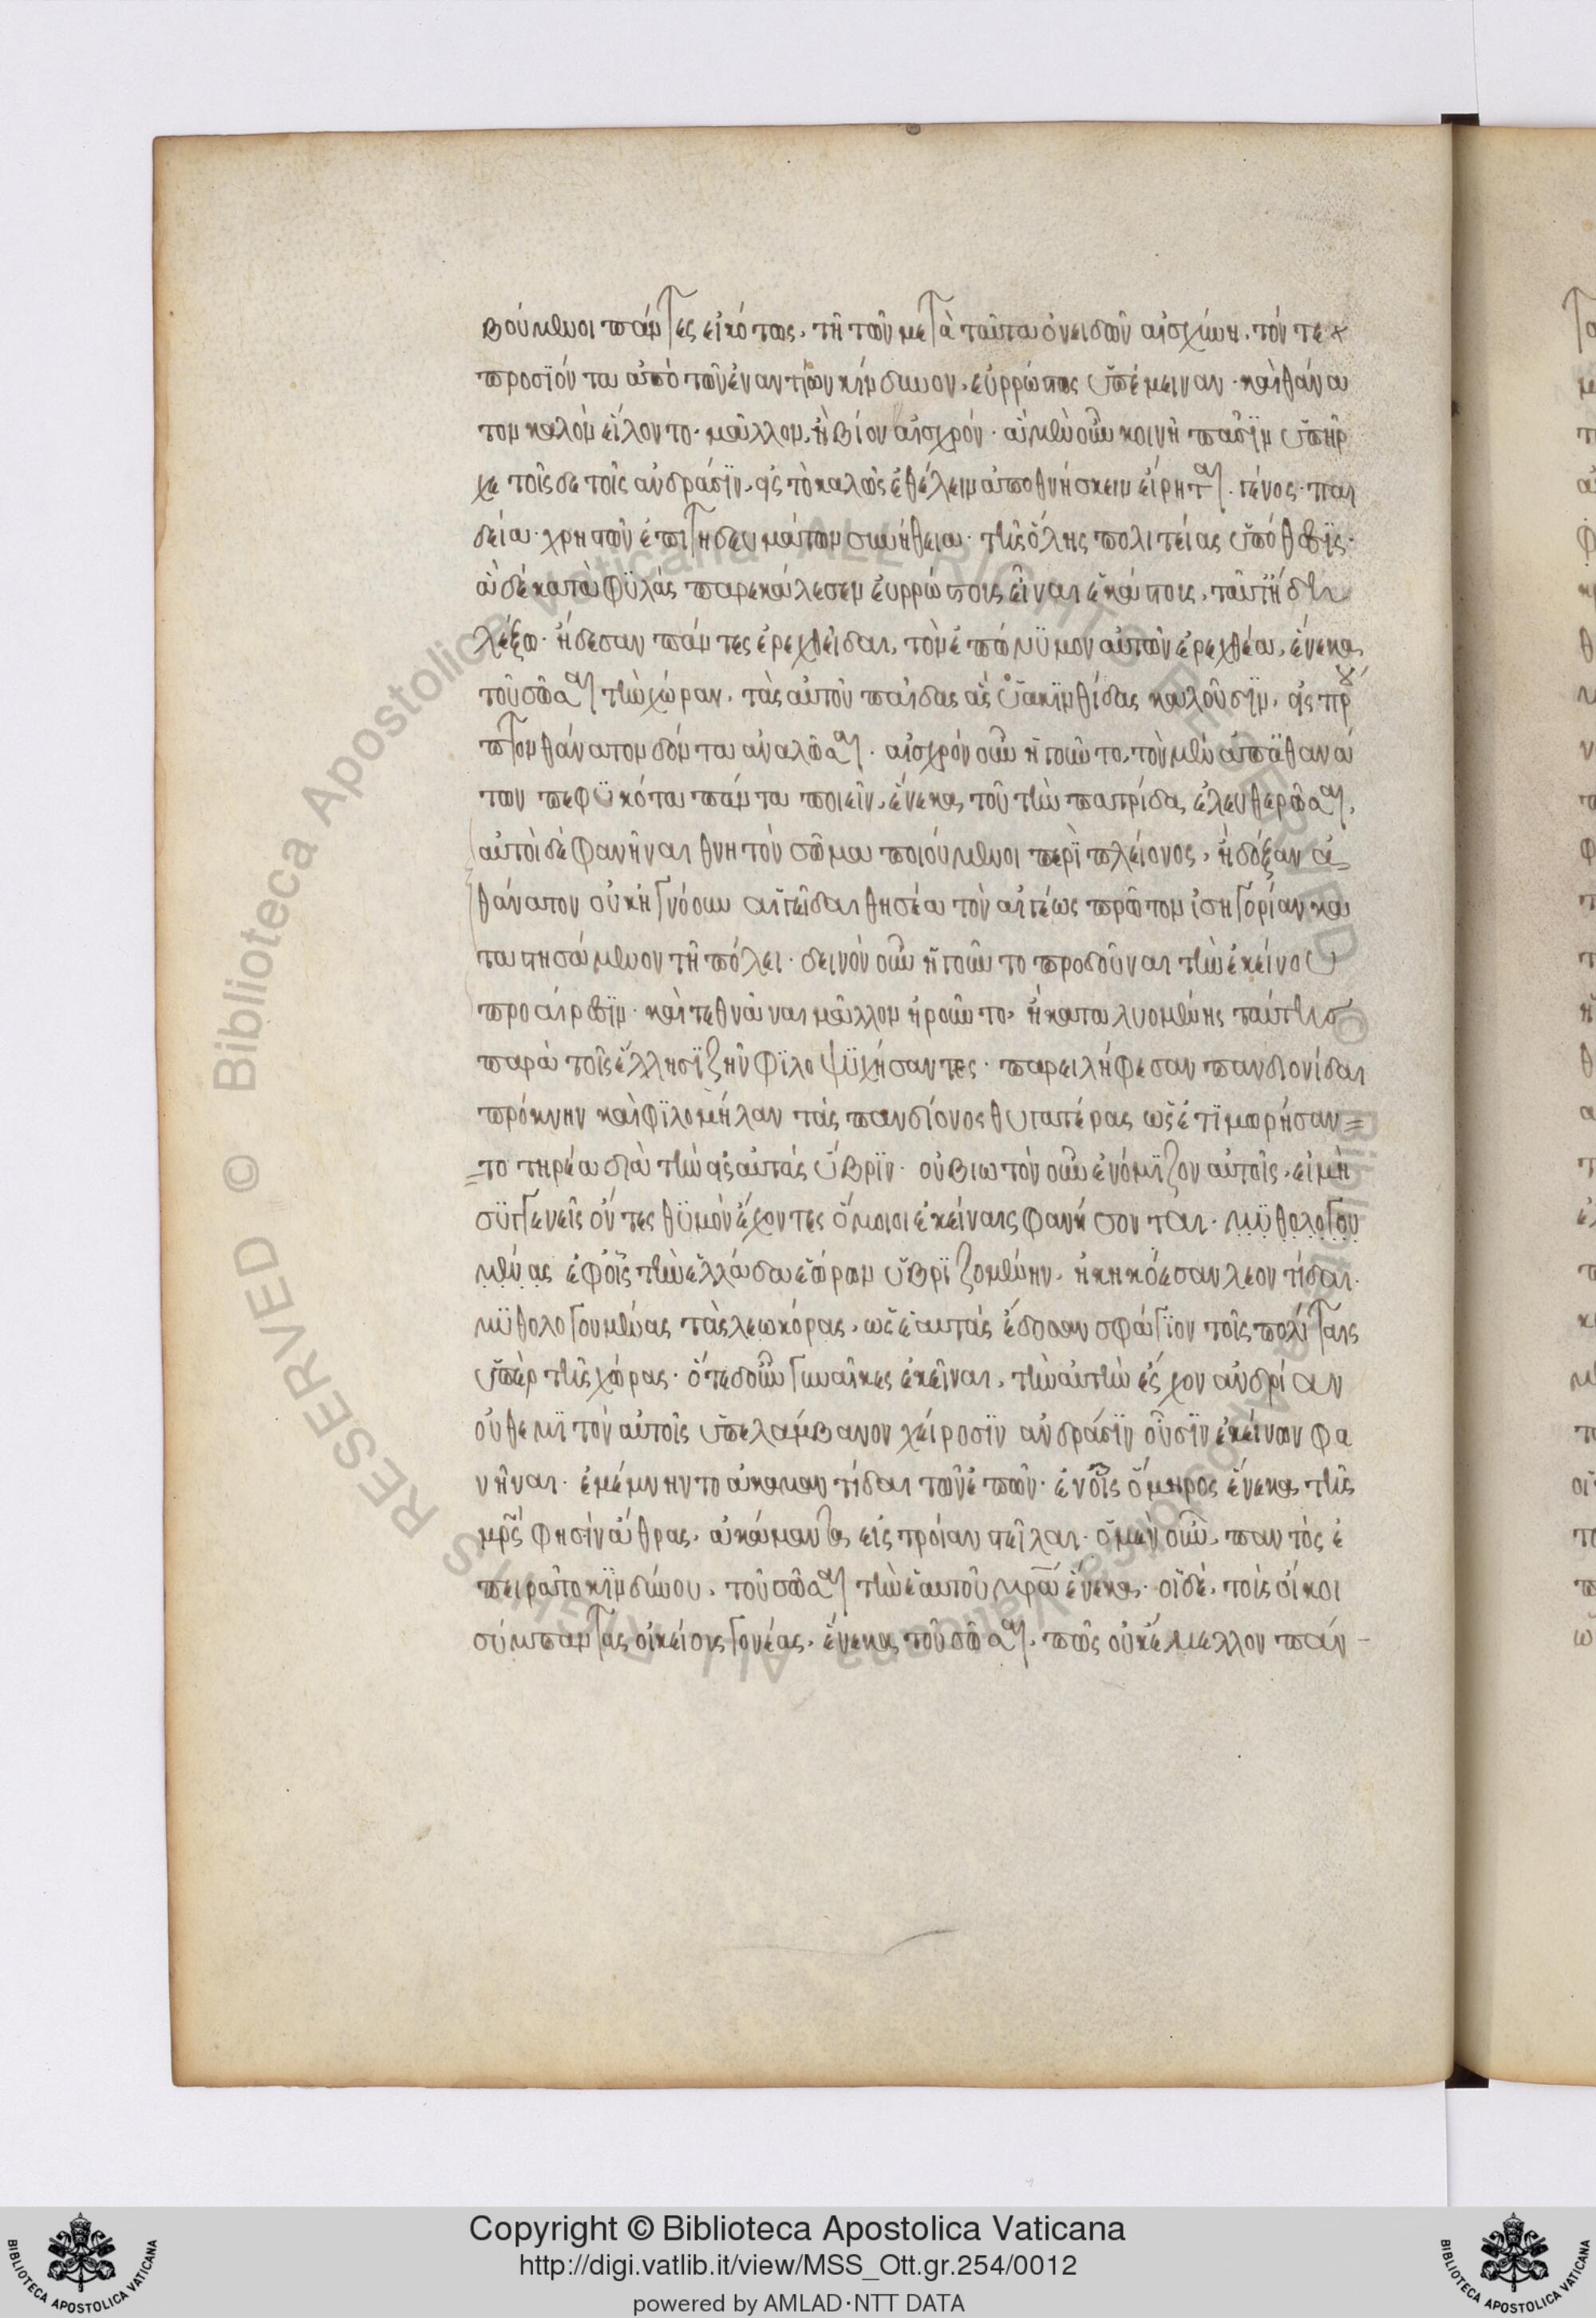 βούμενοι πάντες εἰκότως, τῆ τῶν μετὰ ταῦτα ὀνειδῶν αἰσχύνη, τόν τε
προσϊόντα ἀπὸ τῶν ἐναντίων κίνδυνον, εὐρρώστως ὑπέμειναν· καὶ θάνα
τον καλὸν εἵλοντο· μᾶλλον, ἢ βίον αἰσχρόν· ἃ μὲν οὖν κοινῆ πᾶσϊν ὑπῆρ
χε τοῖς δε τοῖς ἀνδράσϊν, εἰς τὸ καλῶς ἐθέλειν ἀποθνήσκειν εἴρηται· γένος· παι
δεία· χρηστῶν ἐπιτηδευμάτων συνήθεια· τῆς ὅλης πολιτείας ὑπόθεσϊς·
ἃ δὲ κατὰ φϋλὰς παρεκάλεσεν εὐρρώστοις εἶναι ἑκάστοις, ταῦτ ἤδη
λέξω· ἤδεσαν πάντες ἐρεχθεῖδαι, τὸν ἐπώνϋμον αὐτῶν ἐρεχθέα, ἕνεκα
τοῦ σῶσαι τὴν χώραν, τὰς αὐτοῦ παῖδας ἃς ὑακϊνθίδας καλοῦσϊν, εἰς πρ
πτον θάνατον δόντα ἀναλῶσαι· αἰσχρὸν οὖν ἡγοῦντο, τὸν μὲν ἀπ ἀθανά
των πεφϋκότα πάντα ποιεῖν, ἕνεκα τοῦ τὴν πατρίδα ἐλευθερῶσαι,
αὐτοὶ δὲ φανῆναι θνητὸν σῶμα ποιούμενοι περὶ πλείονος, ἢ δόξαν ἀ
θάνατον οὐκ ἠγνόουν αἰγεῖδαι θησέα τὸν αἰγέως πρῶτον ἰσηγορίαν κα
ταστησάμενον τῆ πόλει· δεινὸν οὖν ἡγοῦντο προδοῦναι τὴν ἐκείνου
προαίρεσϊν· καὶ τεθνάναι μᾶλλον ἡροῦντο, ἢ καταλυομένης ταύτης
παρὰ τοῖς ἕλλησϊ ζῆν φϊλοψϋχήσαντες· παρειλήφεσαν πανδιονίδαι
πρόκνην καὶ φϊλομήλαν τὰς πανδίονος θυγατέρας ὡς ἐτϊμωρήσαν
το τηρέα διὰ τὴν εἰς αὐτὰς ὕβρϊν· οὐ βιωτὸν οὖν ἐνόμϊζον αὐτοῖς, εἰ μὴ
σϋγγενεῖς ὄντες θϋμὸν ἔχοντες ὅμοιοι ἐκείναις φανήσονται· μϋθολογου
μένας ἐφ οἷς τὴν ἑλλάδα ἑώρων ὑβρϊζομένην, ἠκηκόεσαν λεοντίδαι·
μϋθολογουμένας τὰς λεωκόρας, ὡς ἑαυτὰς ἔδοσαν σφάγϊον τοῖς πολίταις
ὑπὲρ τῆς χώρας· ὅτε δ οὖν γυναῖκες ἐκεῖναι, τὴν αὐτὴν ἔσχον ἀνδρίαν
οὐ θεμϊτὸν αὐτοῖς ὑπελάμβανον χείροσϊν ἀνδράσϊν οὖσϊν ἐκείνων φα
νῆναι· ἐμέμνηντο ἀκαμαντίδαι τῶν ἐπῶν· ἐν οἷς ὅμηρος ἕνεκα τῆς
μρς φησὶν αἴθρας, ἀκάμαντα εἰς τροίαν στεῖλαι· ὁ μὲν οὖν, παντὸς ἐ
πειρᾶτο κϊνδύνου, τοῦ σῶσαι τὴν ἑαυτοῦ μρα ἕνεκα· οἱ δὲ, τοὺς οἴκοι
σύμπαντας οἰκείους γονέας, ἕνεκα τοῦ σῶσαι, πῶς οὐκ ἔμελλον πάν
Copyright © Biblioteca Apostolica Vaticana
http://digi.vatlib.it/view/MSS_Ott.gr.254/0012
powered by AMLAD·NTT DATA